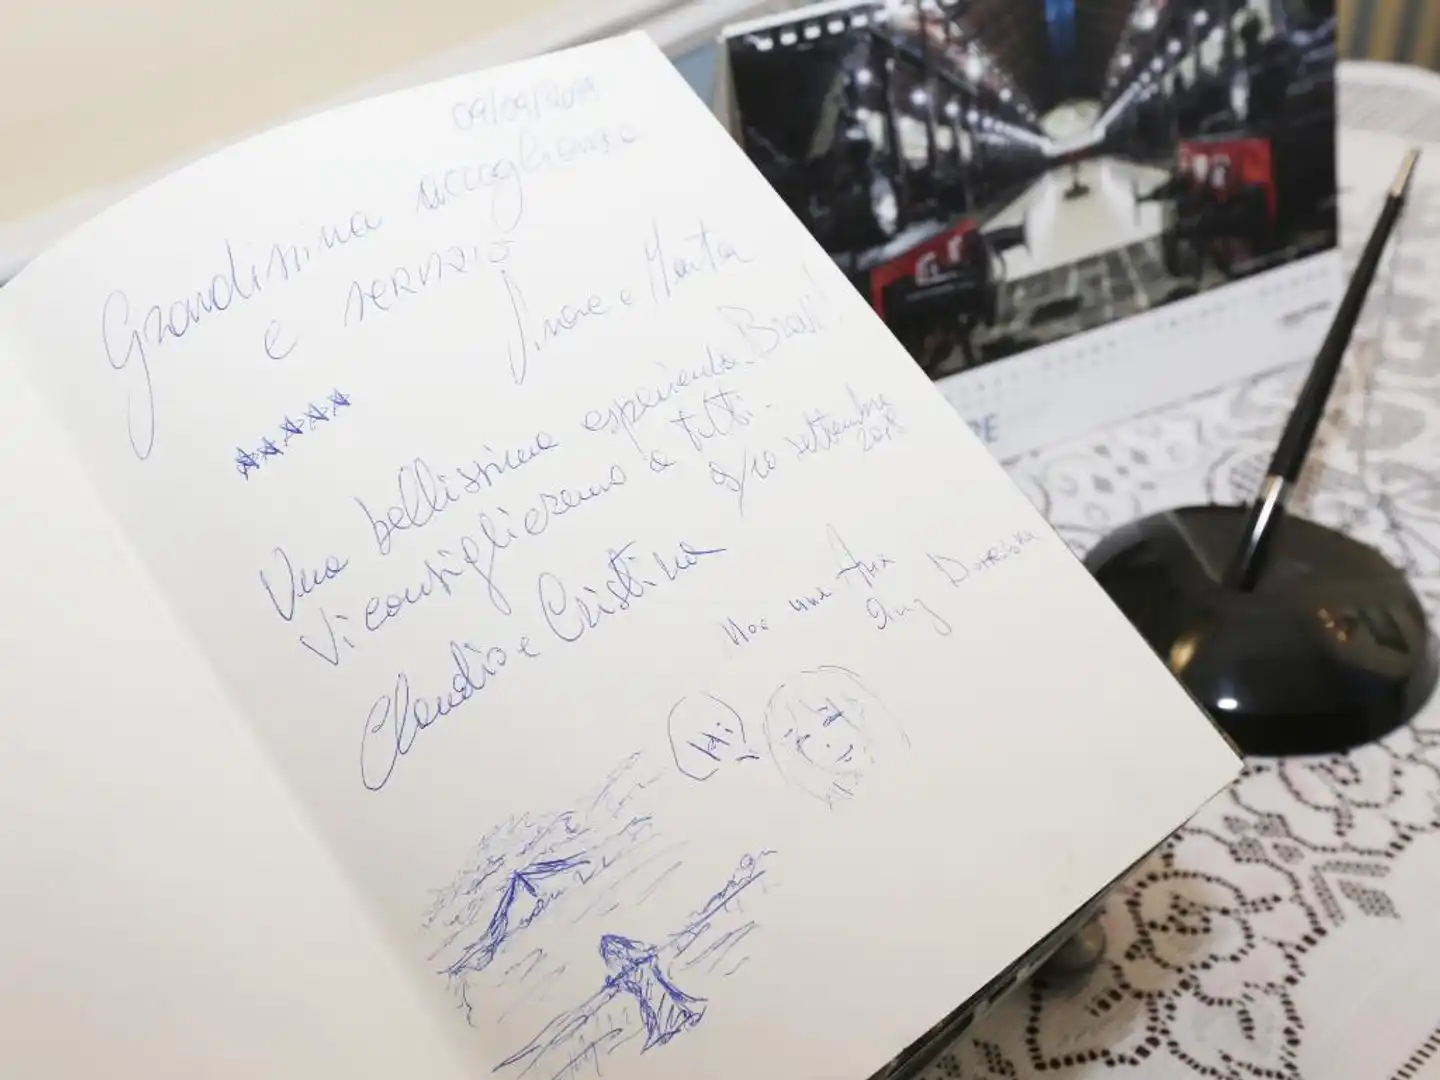 09/09/2018
Grandissima accoglienza
e servizio
e Marta
Una bellissima esperienza. Bravi!
Vi consiglieremo a tutti.
9/10 settembre
2018
Claudio e Cristina
Hi
RE